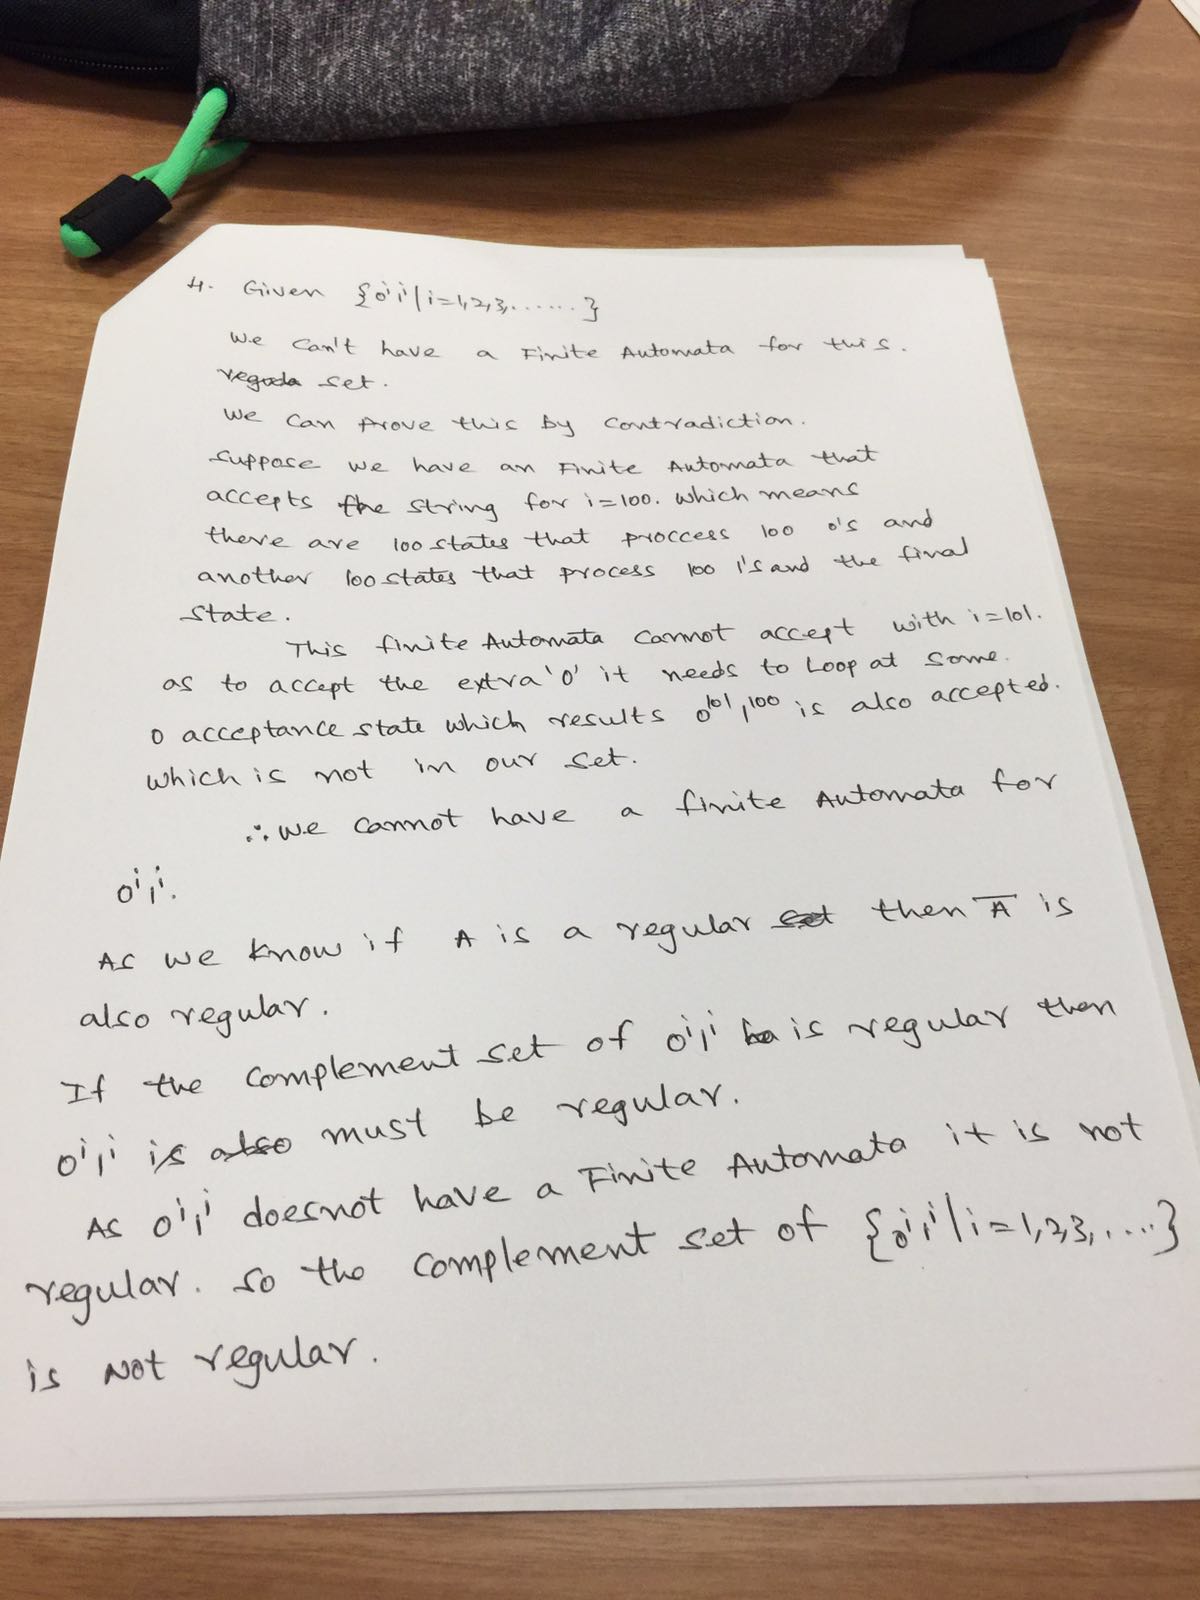 4. Given {0ⁱ1ⁱ | i=1,2,3,......}
We can't have a Finite Automata for this.
set.
We can prove this by contradiction.
Suppose we have an Finite Automata that
accepts the string for i=100. Which means
there are 100 states that proccess 100 0's and
another 100 states that process 100 1's and the final
state.
This finite Automata cannot accept with i=101.
as to accept the extra '0' it needs to Loop at some.
0 acceptance state which results 0¹⁰¹1¹⁰⁰ is also accepted.
which is not in our set.
∴ we cannot have a finite Automata for
0ⁱ1ⁱ.
As we know if A is a regular set then A̅ is
also regular.
If the complement set of 0ⁱ1ⁱ is regular then
0ⁱ1ⁱ is also must be regular.
As 0ⁱ1ⁱ doesnot have a Finite Automata it is not
regular. so the complement set of {0ⁱ1ⁱ | i=1,2,3,....}
is Not regular.